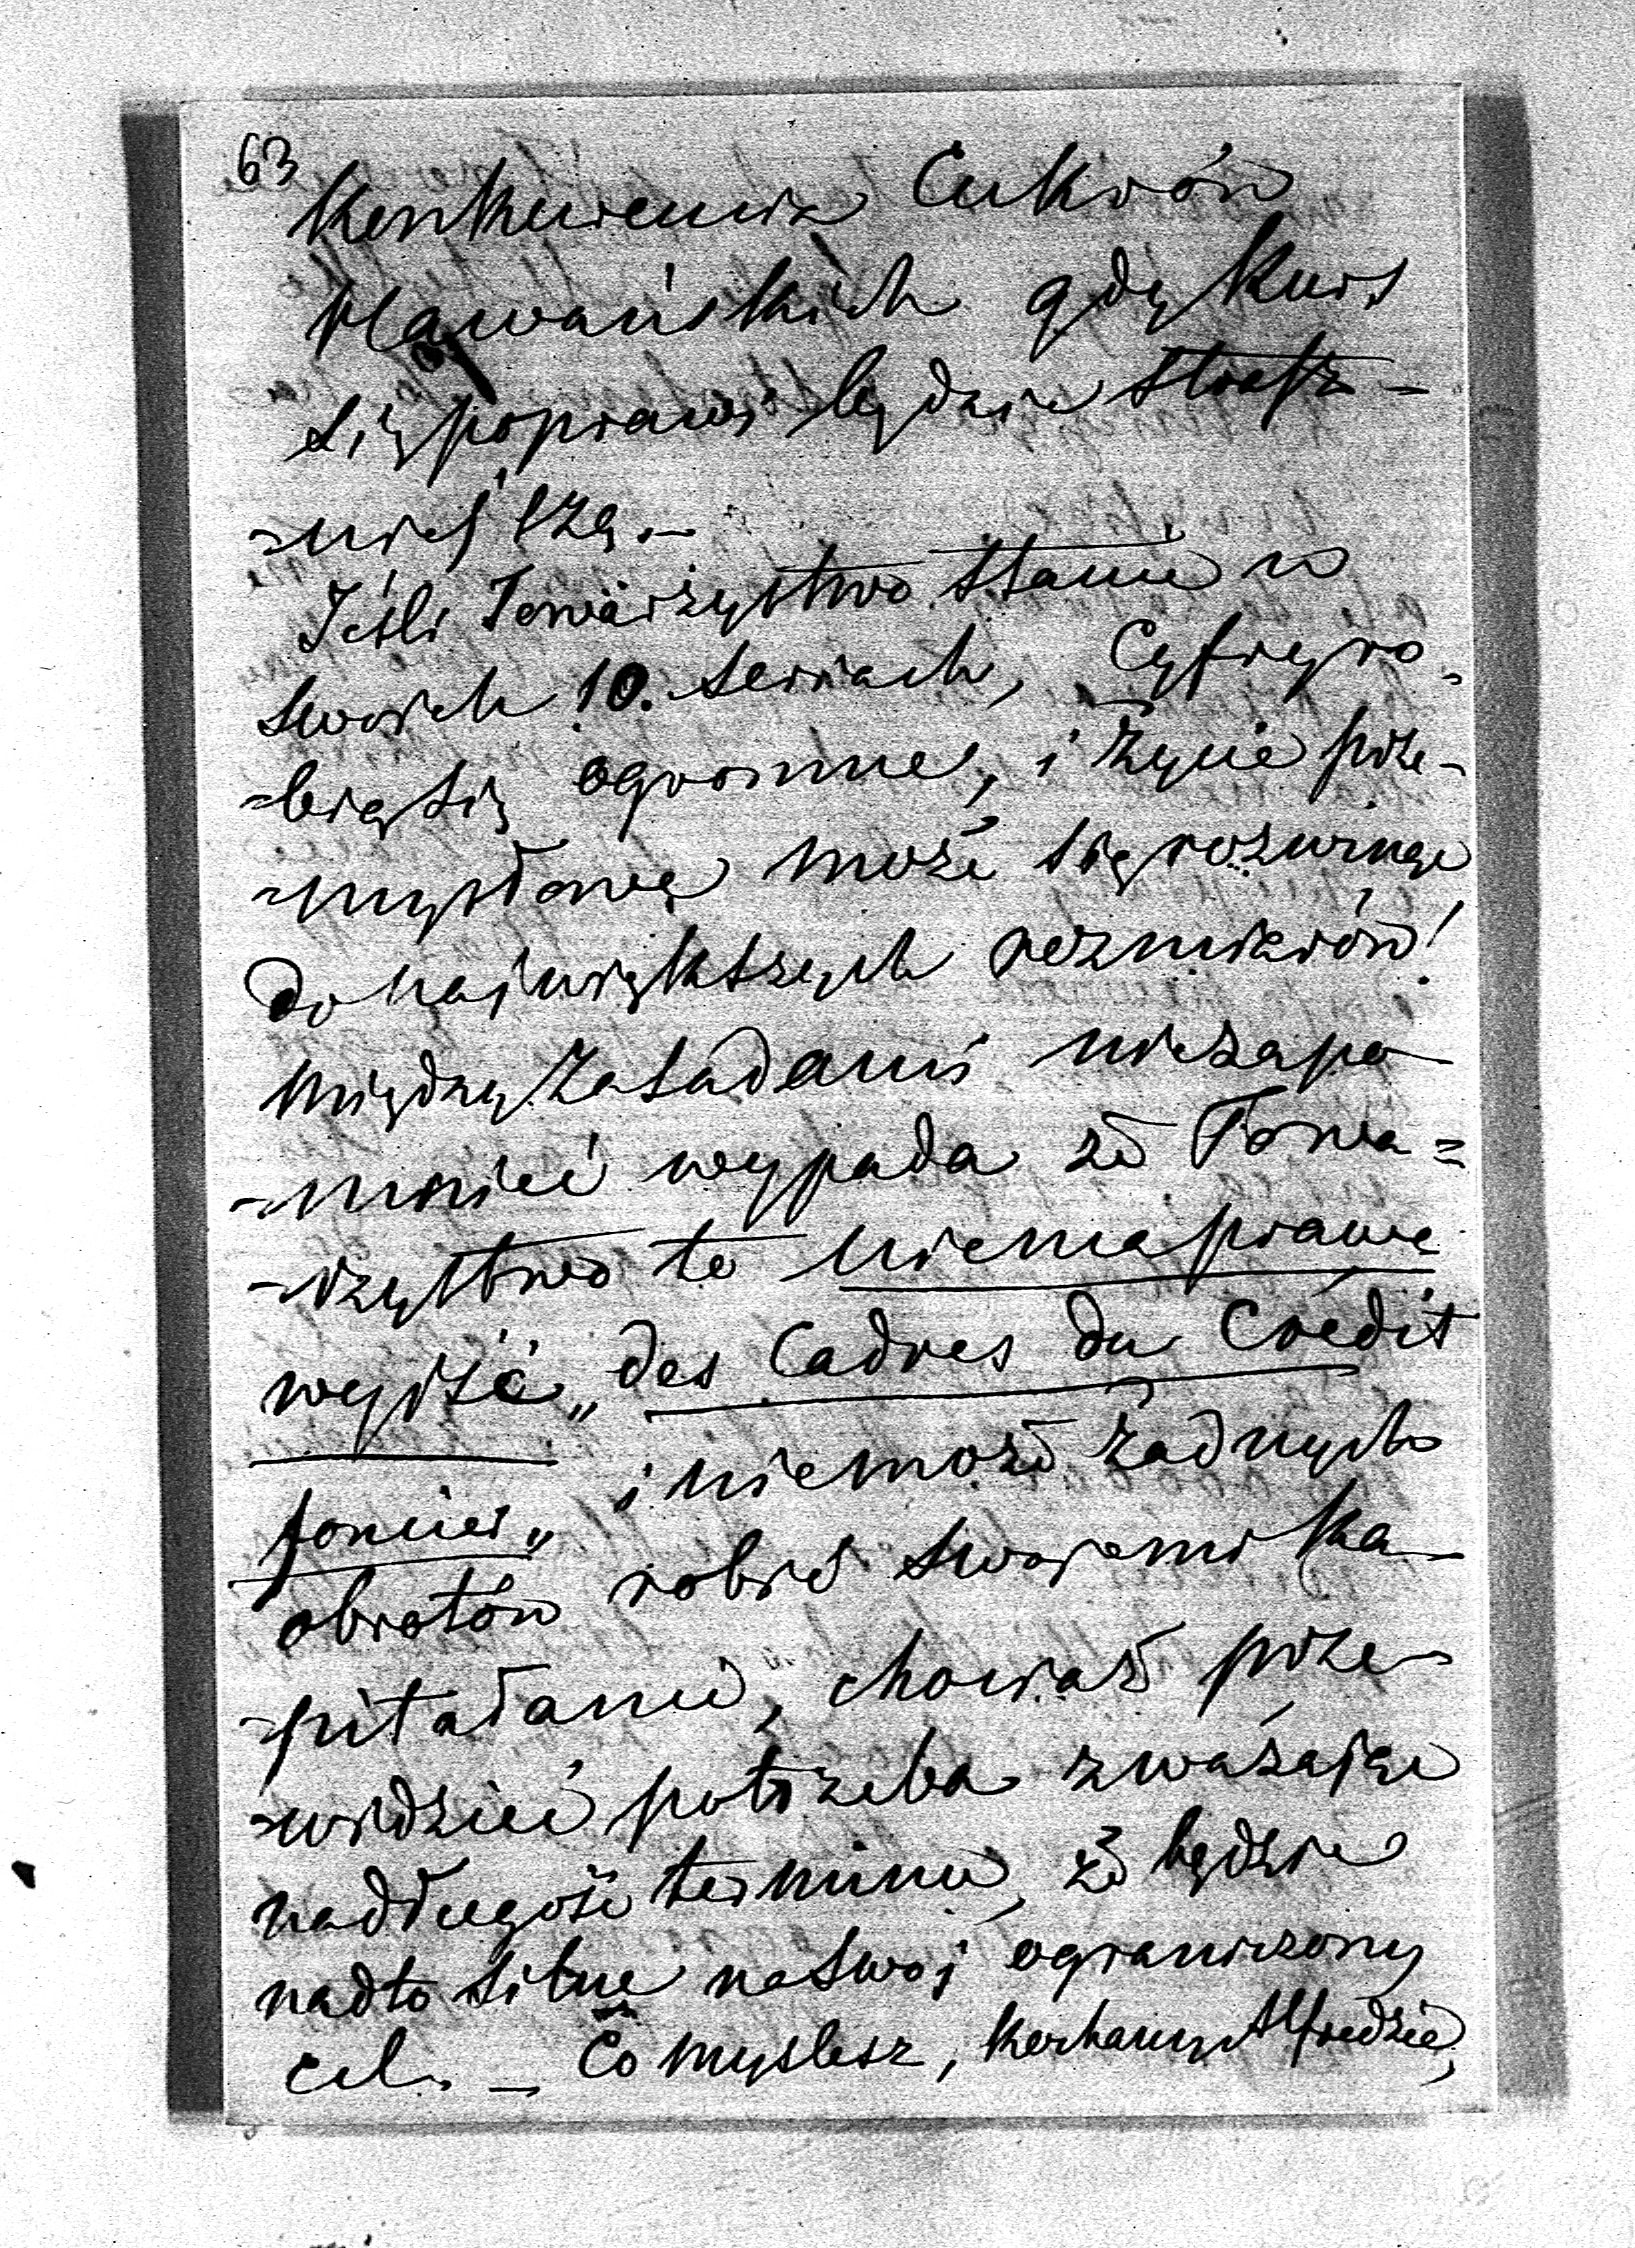 63
Konkurencia Cukrów
Hawańskich gdy kurs
się poprawi będzie strasz-
-niejszą.-
Jeśli Towarzystwo stanie w
swoich 10. seriach, Cyfry ro-
-bią się ogromne, i życie prze-
-mysłowe może się rozwinąć
do największych rozmiarów!
między zasadami niezapo-
-mnieć wypada że Towa=
-rzystwo to niema prawa
wyjść „des Cadres du Crédit
foncier„ i niemoże żadnych
obrotów robić swojemi ka-
-pitałami, chociaż prze-
-widzieć potrzeba zważając
nadługość terminu, że będzie
nadto silne naswój ograniczony
cel. _ Co myslesz, kochany Alfredzie,